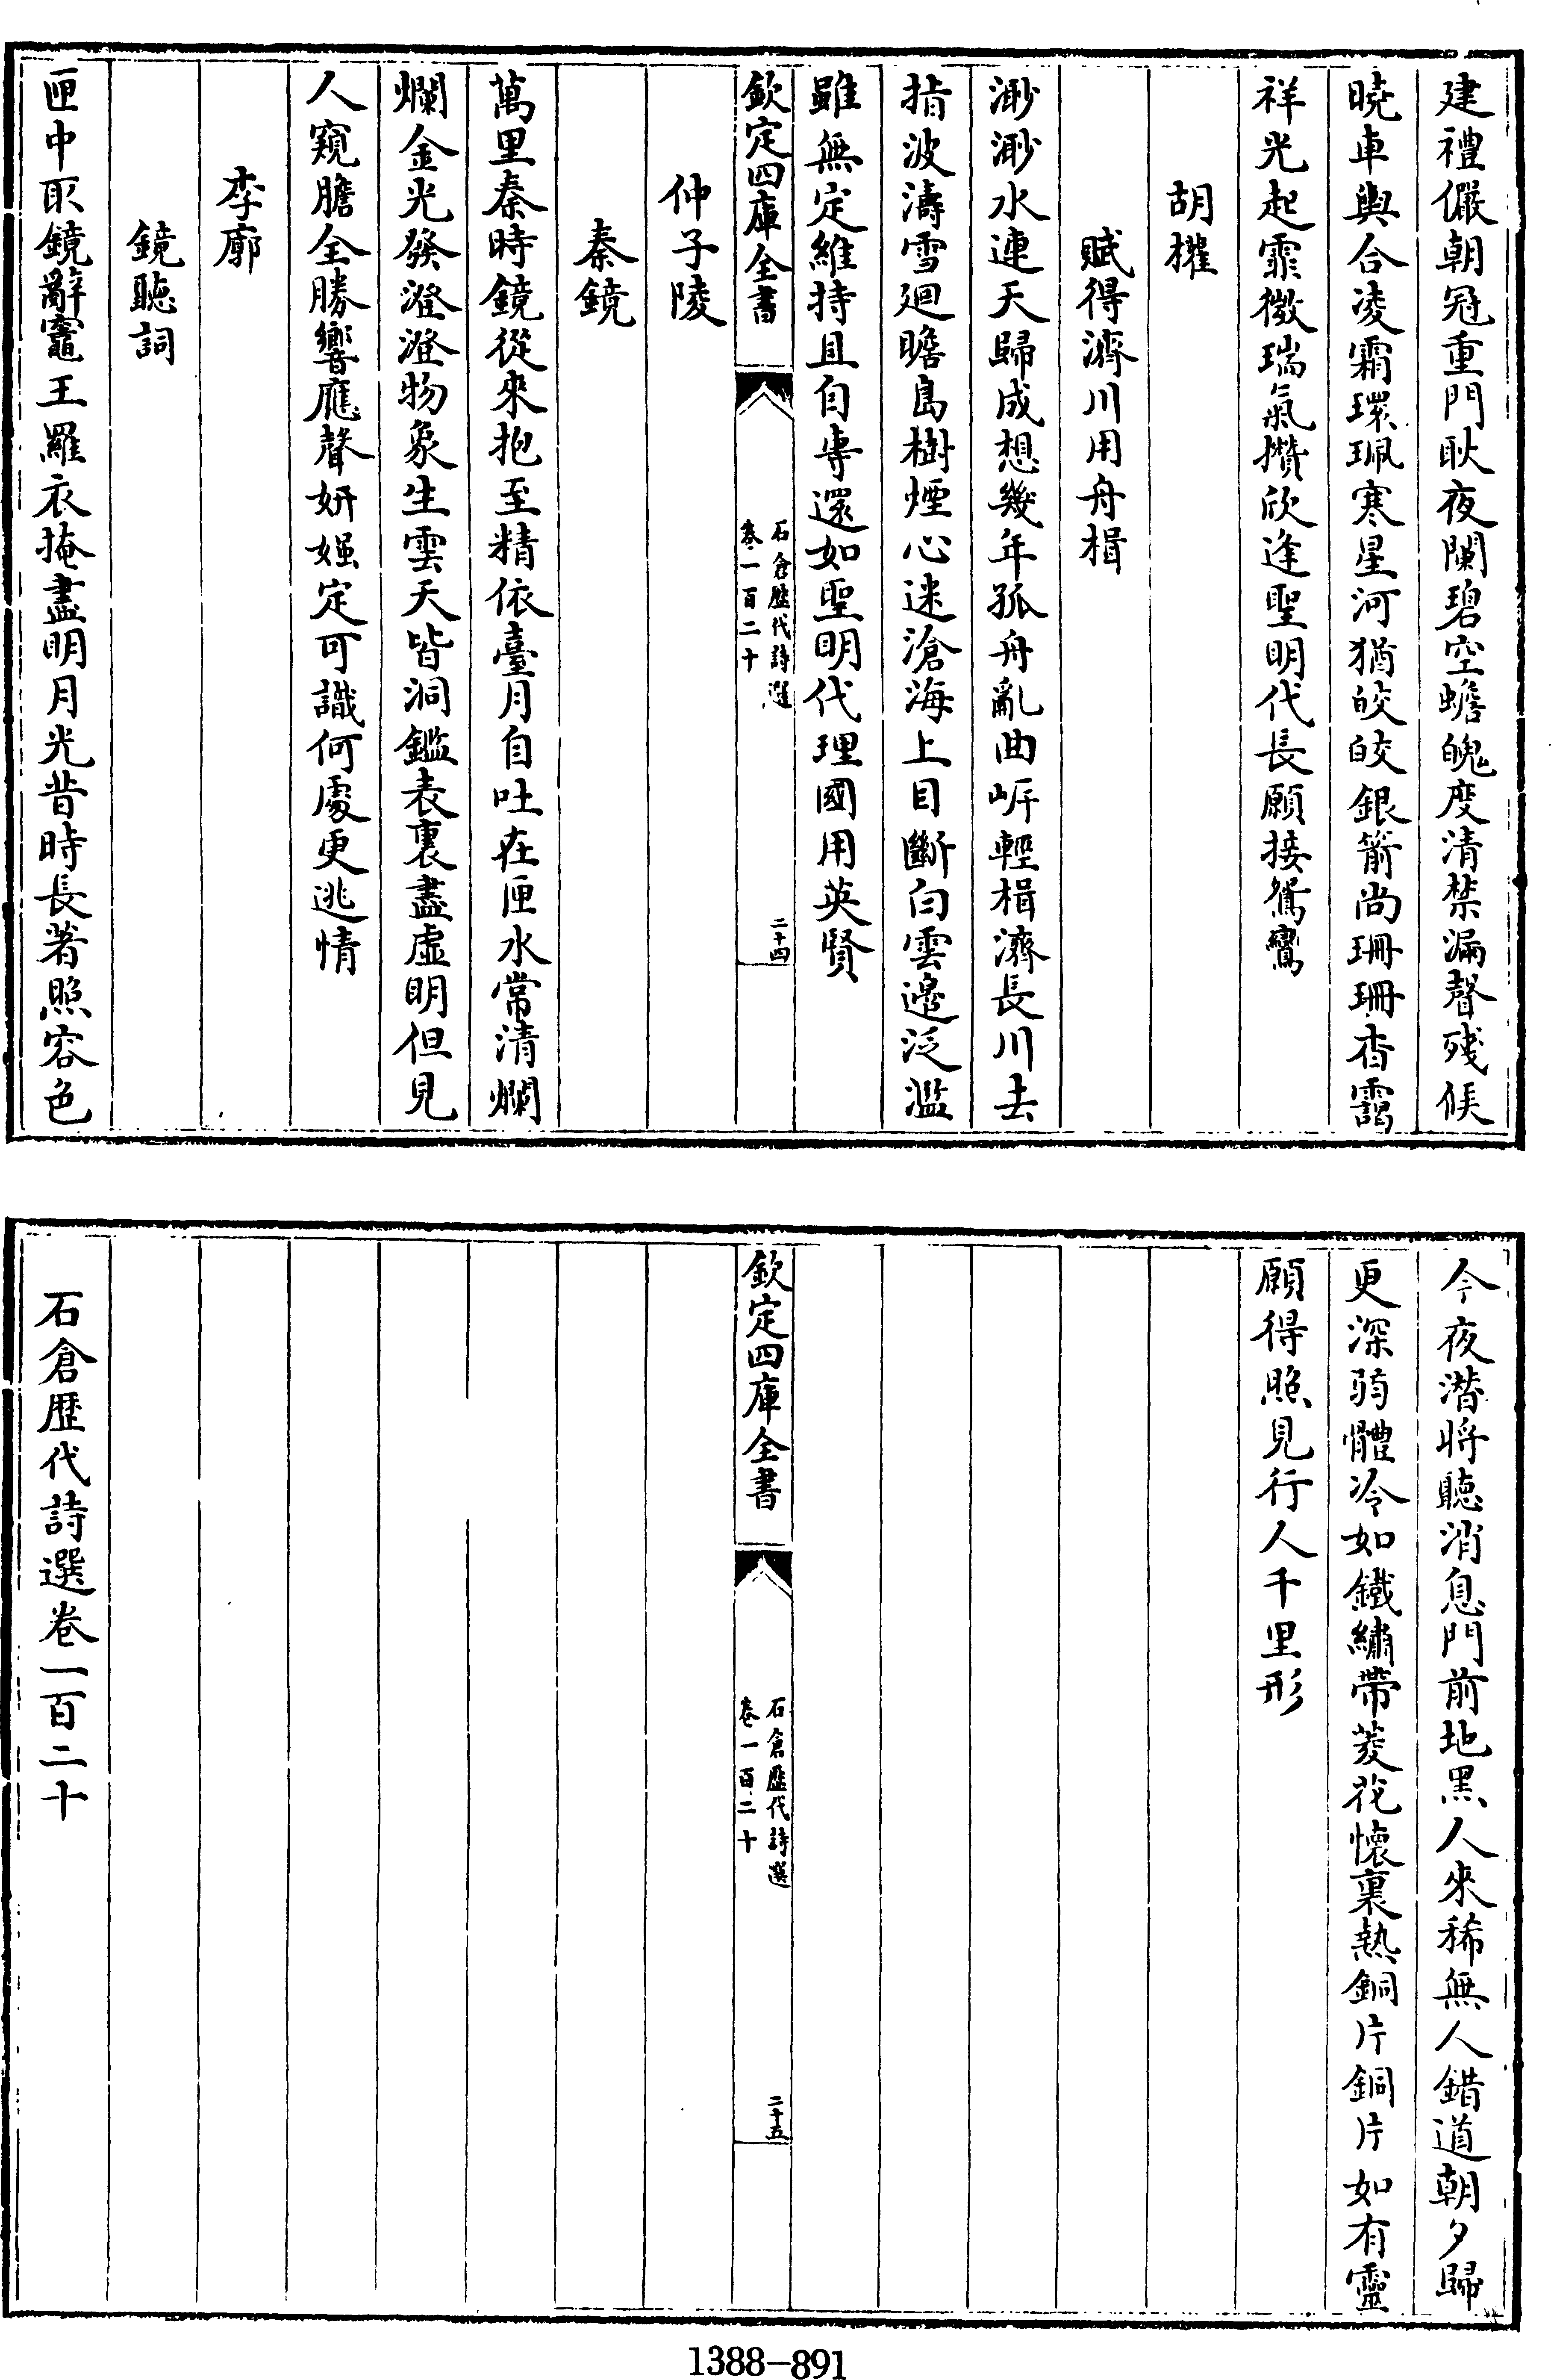 建禮儼朝冠重門耿夜闌碧空蟾魄度清禁漏聲殘候
曉車輿合凌霜環珮寒星河猶皎皎銀箭尚珊珊杳靄
祥光起霏微瑞氣攅欣逢聖明代長願接鴛鸞
胡權
賦得濟川用舟楫
渺渺水連天歸成想幾年孤舟亂曲㟁輕楫濟長川去
指波濤雪廻瞻島樹煙心迷滄海上目斷白雲邉泛濫
雖無定維持且自専還如聖明代理國用英賢
欽定四庫全書
石倉歷代詩選
卷一百二十
二十四
仲子陵
秦鏡
萬里秦時鏡從來抱至精依臺月自吐在匣水常清爛
爛金光發澄澄物象生雲天皆洞鑑表裏盡虛明但見
人窺膽全勝響應聲妍媸定可識何處更逃情
李廓
鏡聽詞
匣中取鏡辭竈王羅衣掩盡明月光昔時長著照容色
今夜潛將聽消息門前地黒人來稀無人錯道朝夕歸
更深弱體冷如鐵繡帶菱花懷裏熱銅片銅片如有靈
願得照見行人千里形
欽定四庫全書
石倉歷代詩選
卷一百二十
二十五
石倉歷代詩選卷一百二十
1388-891